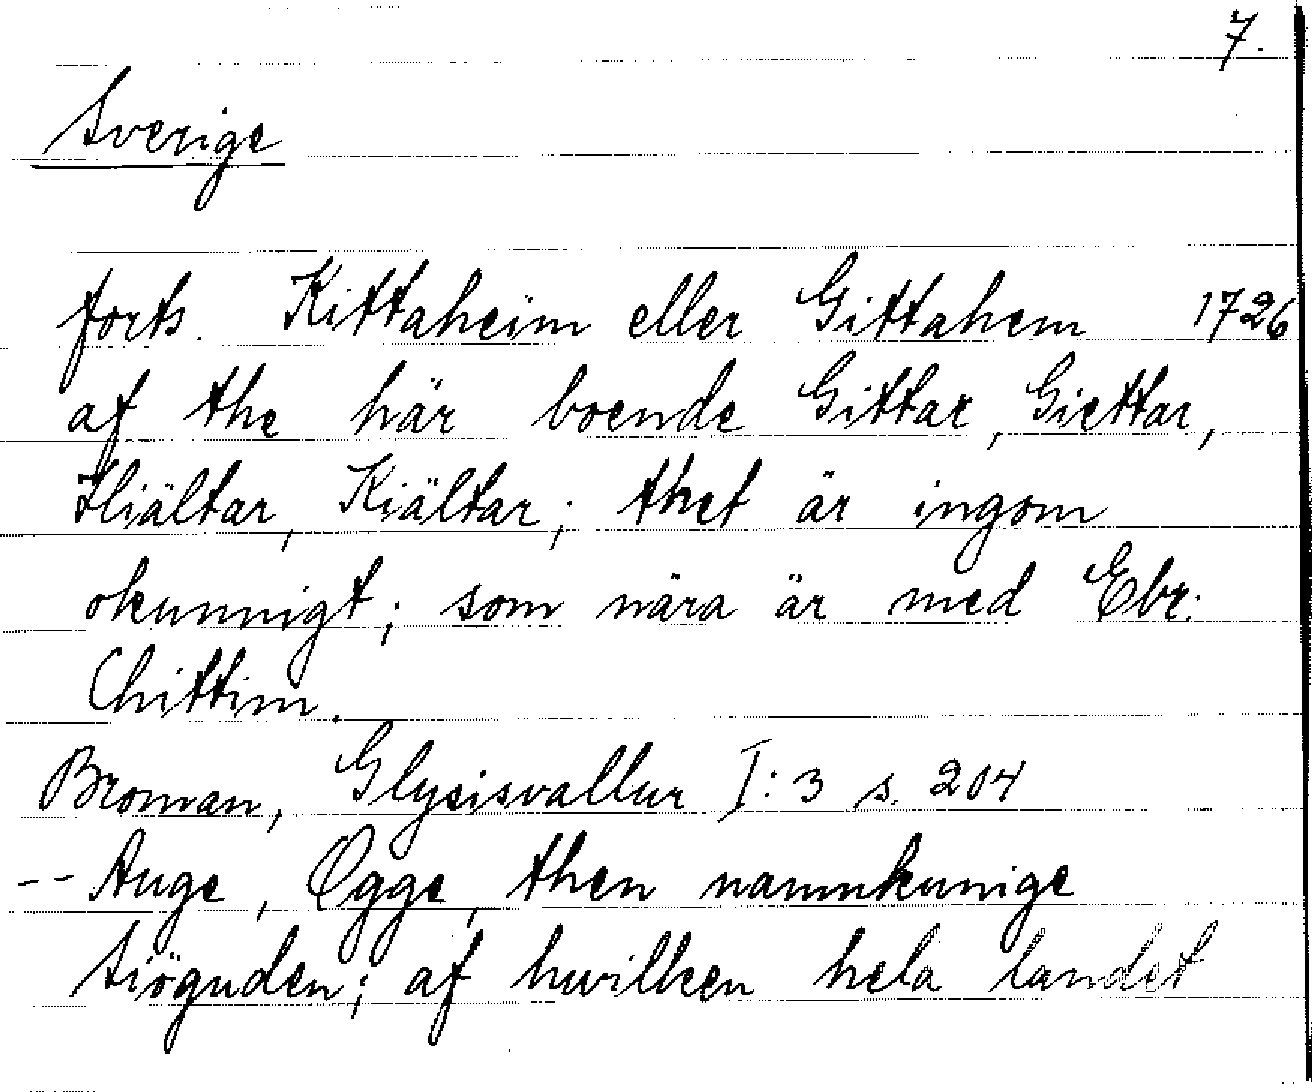 7.
Sverige
forts. Kittaheim eller Gittahem 1726
af the här boende Gittar, Giettar,
Hiältar, Kiältar; thet är ingom
okunnigt; som nära är med Ebr.
Chittim.
Broman, Glysisvallur I:3 s. 204
-- Auge, Øgge, then namnkunige
Siöguden; af hwilken hela landet